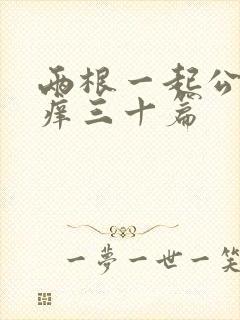 两根一起公
痒三十篇
一夢一世一笑